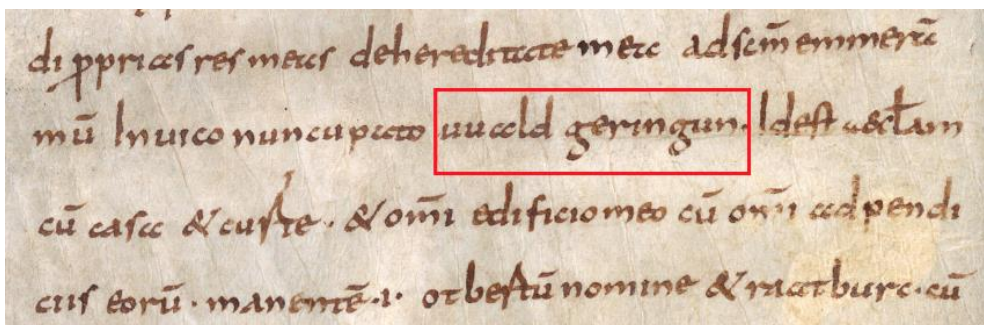 di pprias res meas de hereditate mea ad scm̄ emmerā
mū In uico nuncupato uuald geringun. Id est aeccl̄am
cū casa & curte · & om̄i edificio meo cū om̄i adpendi
ciis eorū · manentē · i · otbertū nomine & ratburc · cū